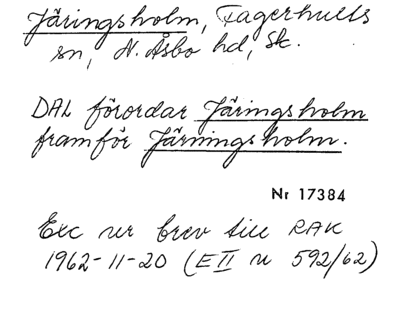 Järingsholm, Fagerhults
sn, N. Åsbo hd, Sk.
DAL förordar Järingsholm
framför Järningsholm.
Nr 17384
Exc ur brev till RAK
1962-11-20 (E II u 592/62)